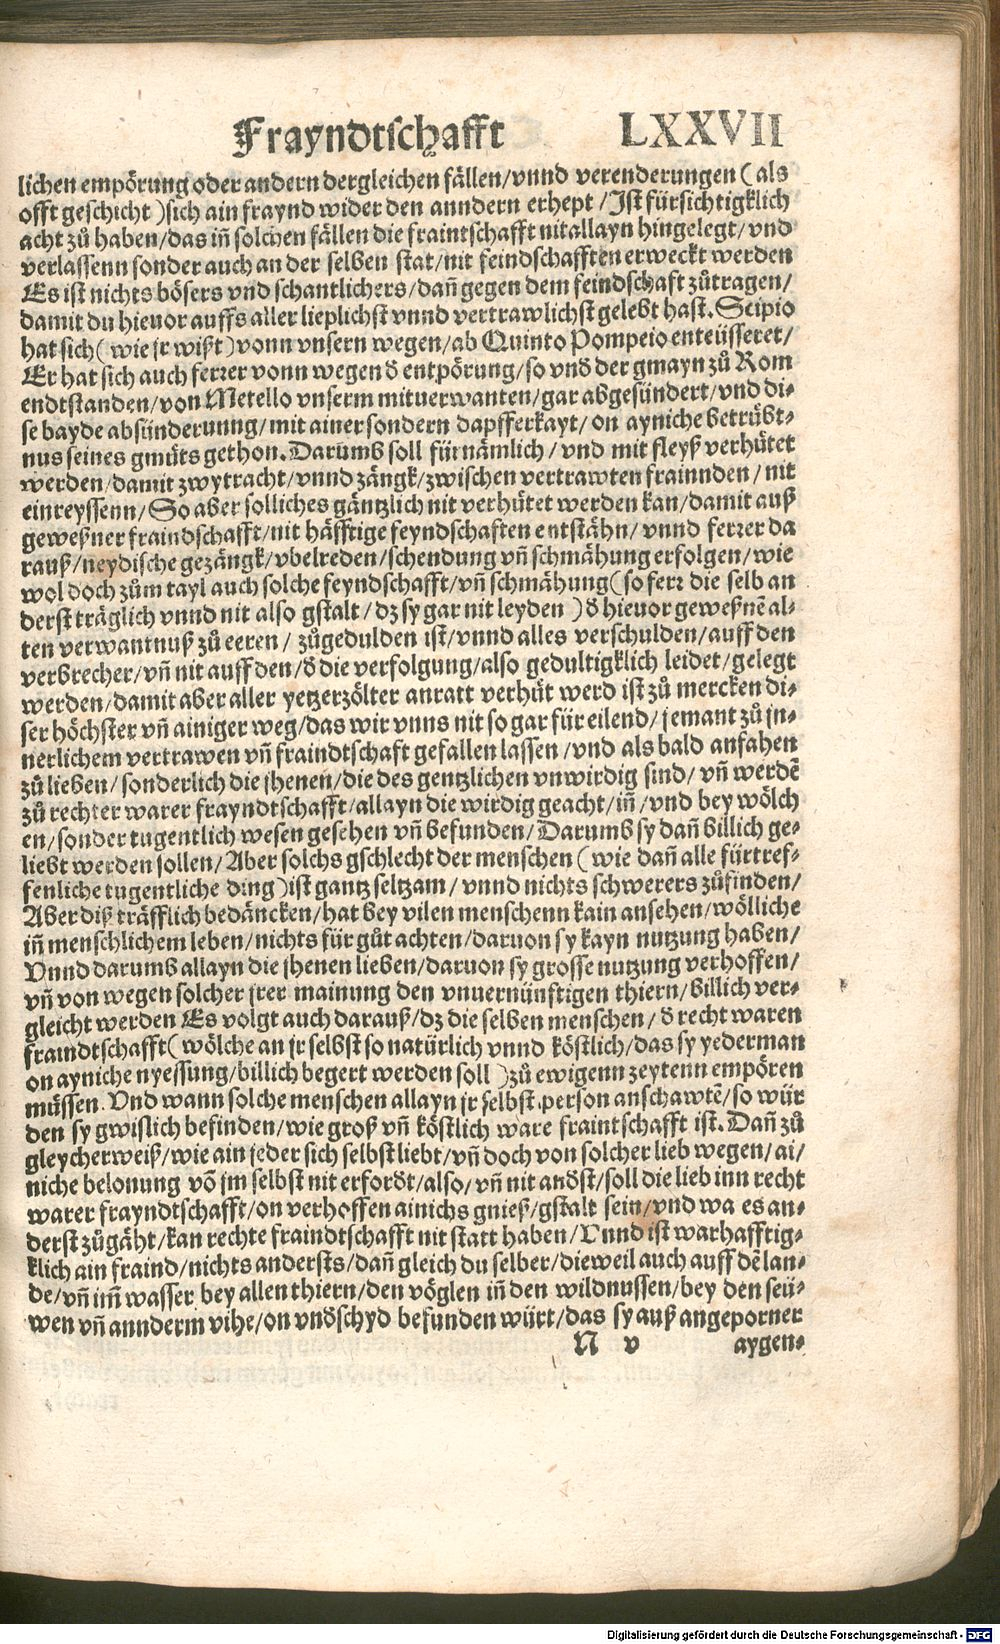 Frayndtschafft LXXVII
lichen empörung oder andern dergleichen fällen/vnnd verenderungen (als
offt geschicht) sich ain fraynd wider den anndern erhept/Ist fürsichtigklich
acht zů haben/das iñ solchen fällen die fraintschafft nit allayn hingelegt/vnd
verlassenn sonder auch an der selben stat/nit feindschafften erweckt werden
Es ist nichts bösers vnd schantlichers/dañ gegen dem feindschaft zůtragen/
damit du hieuor auffs aller lieplichst vnnd vertrawlichst gelebt hast. Scipio
hat sich (wie jr wißt) vonn vnsern wegen/ab Quinto Pompeio enteüsseret/
Er hat sich auch ferrer vonn wegen ð entpörung/so vnð der gmayn zů Rom
endtstanden/von Metello vnserm mituerwanten/gar abgesündert/vnd di⸗
se bayde absünderunng/mit ainer sondern dapfferkayt/on ayniche betrübt⸗
nus seines gmüts gethon. Darumb soll fürnämlich/vnd mit fleyß verhütet
werden/damit zwytracht/vnnd zängk/zwischen vertrawten frainnden/nit
einreyssenn/So aber solliches gäntzlich nit verhütet werden kan/damit auß
geweßner fraindschafft/nit häfftige feyndschaften entstähn/vnnd ferrer da
rauß/neydische gezängk/vbelreden/schendung vñ schmähung erfolgen/wie
wol doch zům tayl auch solche feyndschafft/vñ schmähung (so ferr die selb an
derst träglich vnnd nit also gstalt/dz sy gar nit leyden) ð hieuor geweßnẽ al⸗
ten verwantnuß zů eeren/zůgedulden ist/vnnd alles verschulden/auff den
verbrecher/vñ nit auff den/ð die verfolgung/also gedultigklich leidet/gelegt
werden/damit aber aller yetzerzölter anratt verhüt werd ist zů mercken di⸗
ser höchster vñ ainiger weg/das wir vnns nit so gar für eilend/jemant zů jn⸗
nerlichem vertrawen vñ fraindtschaft gefallen lassen/vnd als bald anfahen
zů lieben/sonderlich die jhenen/die des gentzlichen vnwirdig sind/vñ werdẽ
zů rechter warer frayndtschafft/allayn die wirdig geacht/iñ/vnd bey wölch
en/sonder tugentlich wesen gesehen vñ befunden/Darumb sy dañ billich ge⸗
liebt werden sollen/Aber solchs gschlecht der menschen (wie dañ alle fürtref⸗
fenliche tugentliche ding) ist gantz seltzam/vnnd nichts schwerers zůfinden/
Aber diß träfflich bedäncken/hat bey vilen menschenn kain ansehen/wölliche
iñ menschlichem leben/nichts für gůt achten/daruon sy kayn nutzung haben/
Vnnd darumb allayn die jhenen lieben/daruon sy grosse nutzung verhoffen/
vñ von wegen solcher jrer mainung den vnuernünftigen thiern/billich ver⸗
gleicht werden Es volgt auch darauß/dz die selben menschen/ð recht waren
fraindtschafft (wölche an jr selbst so natürlich vnnd köstlich/das sy yederman
on ayniche nyessung/billich begert werden soll) zů ewigenn zeytenn empören
müssen. Vnd wann solche menschen allayn jr selbst person anschawtẽ/so wür
den sy gwislich befinden/wie groß vñ köstlich ware fraintschafft ist. Dañ zů
gleycherweiß/wie ain jeder sich selbst liebt/vñ doch von solcher lieb wegen/ai/
niche belonung võ jm selbst nit erforðt/also/vñ nit anðst/soll die lieb inn recht
warer frayndtschafft/on verhoffen ainichs gnieß/gstalt sein/vnd wa es an⸗
derst zůgäht/kan rechte fraindtschafft nit statt haben/Vnnd ist warhafftig⸗
klich ain fraind/nichts andersts/dañ gleich du selber/dieweil auch auff dẽ lan⸗
de/vñ im̃ wasser bey allen thiern/den vöglen iñ den wildnussen/bey den seü⸗
wen vñ annderm vihe/on vnðschyd befunden würt/das sy auß angeporner
N v aygen⸗
Digitalisierung gefördert durch die Deutsche Forschungsgemeinschaft - DFG